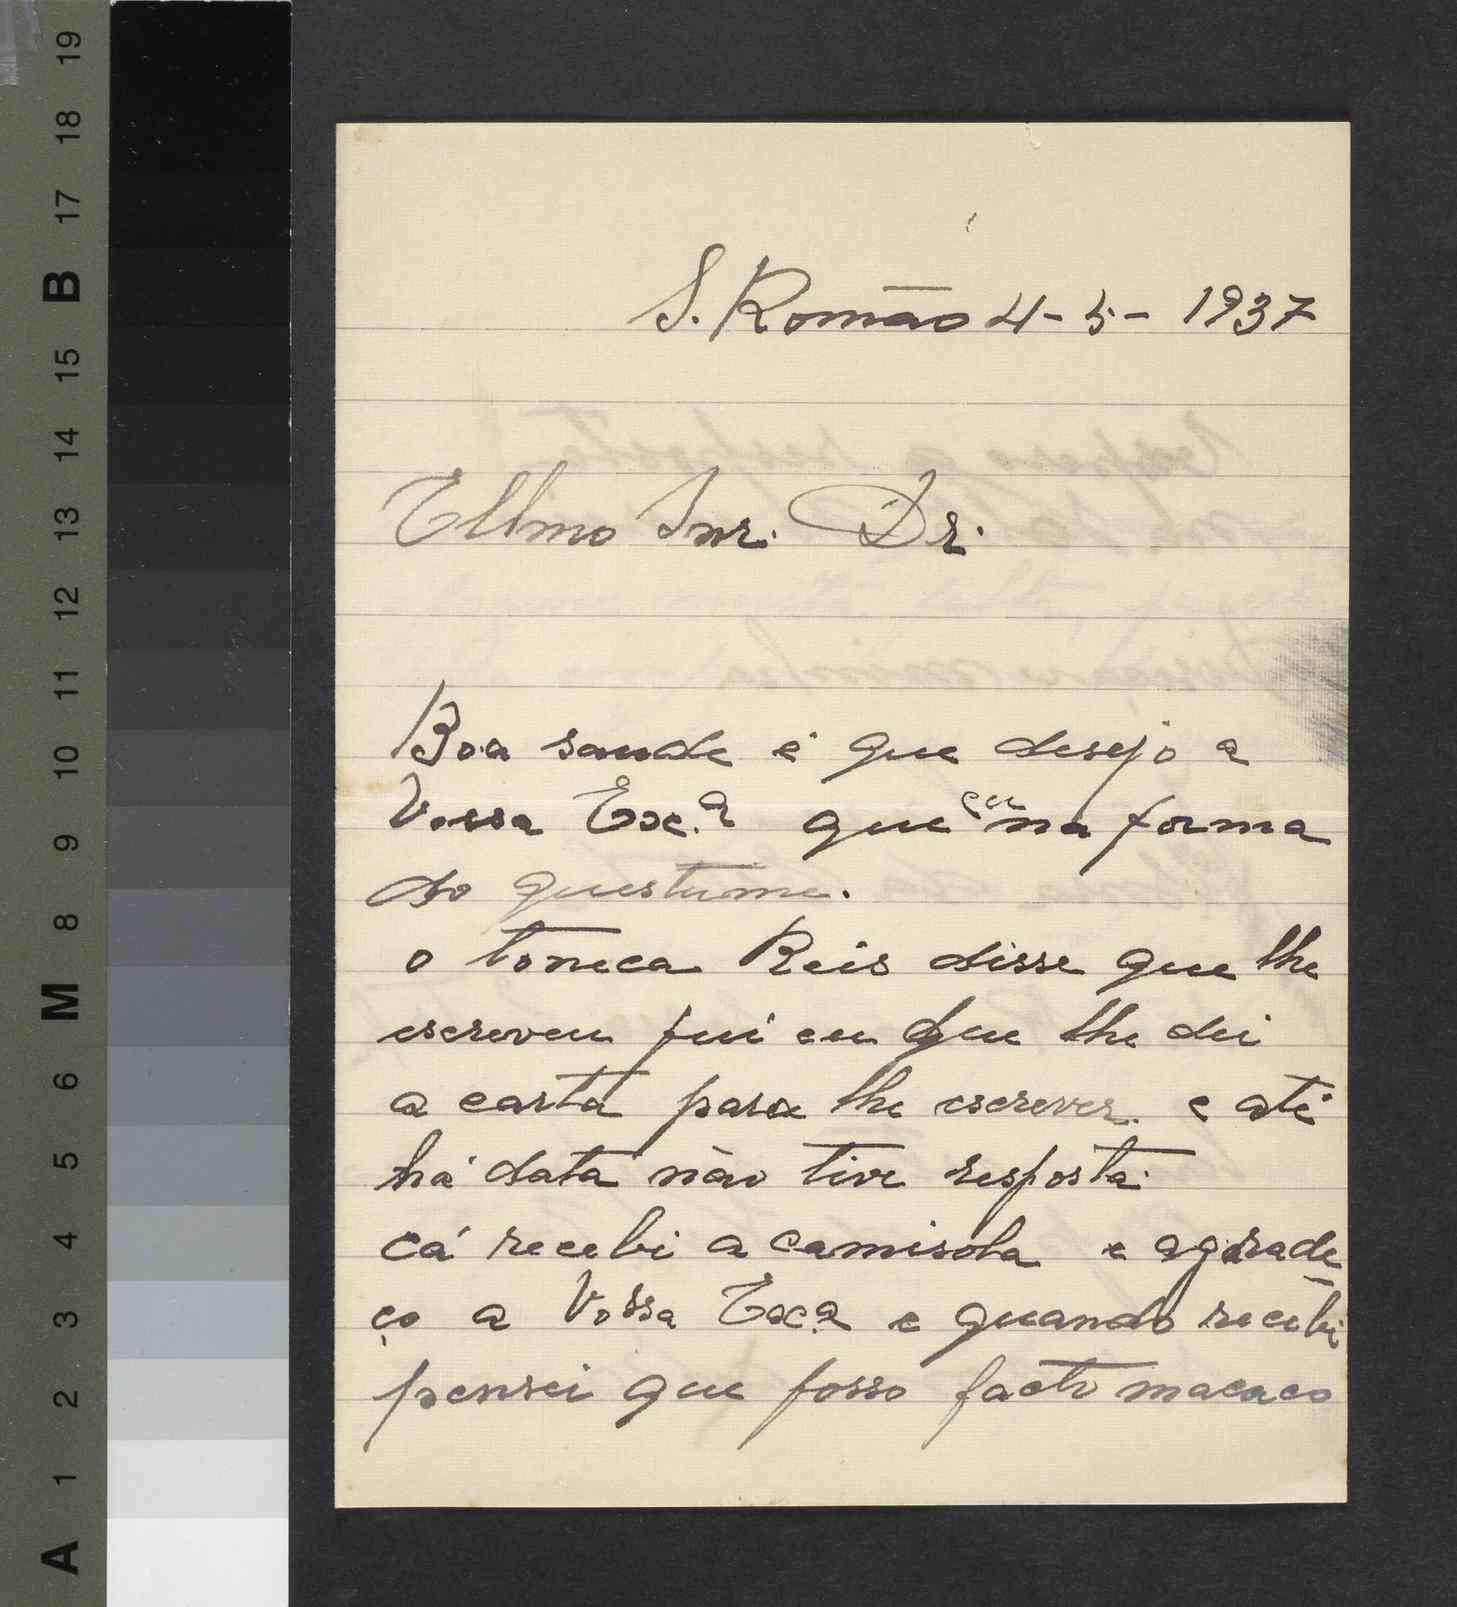 S. Romão 4-5-1937
Ellmo Snr. Dr.
Boa saude é que desejo a
Vossa Exc.a que eu na forma
do questume.
o toneca Reis disse que lhe
escreveu fui eu que lhe dei
a carta para lhe escrever. e até
há data não tive resposta.
cá recebi a camisola e agrade
ço a Vossa Exc.a e quando recebi
pensei que fosso facto macaco
19
18
17
B
16
15
14
13
12
11
10
9
8
M
6
5
4
3
2
1
A